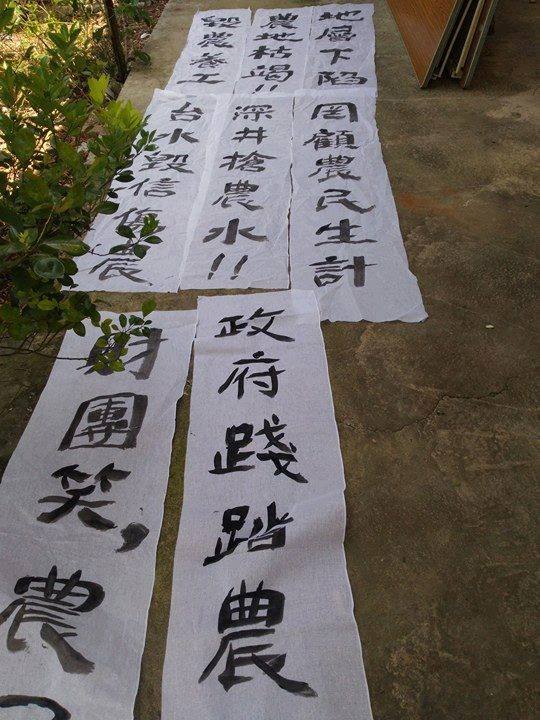 地層下陷
農地枯竭!!
毀農養工
罔顧農民生計
深井搶農水!!
台水毀信傷農
政府踐踏農
財團笑,農